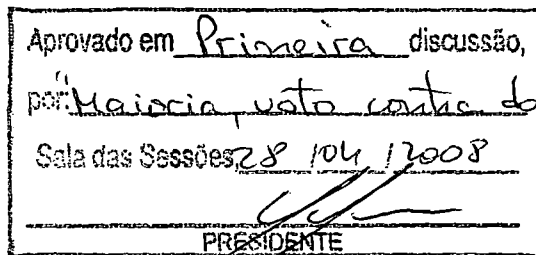 Aprovado em Primeira discussão,
por: "Maioria, voto contra do
Sala das Sessões, 28 / 04 / 2008
PRESIDENTE